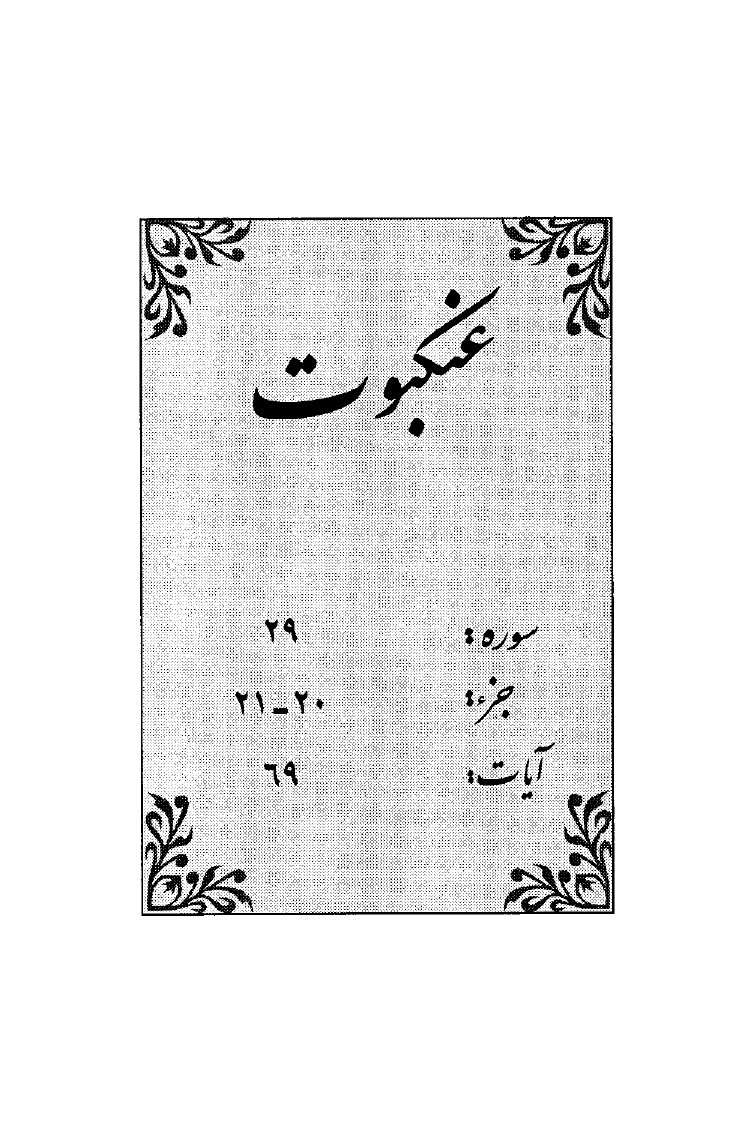 عنکبوت
سوره: ۲۹
جزء: ۲۰ ـ ۲۱
آیات: ٦۹